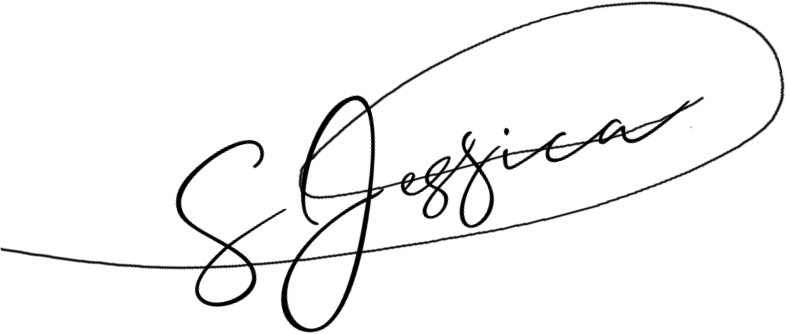 S Jessica